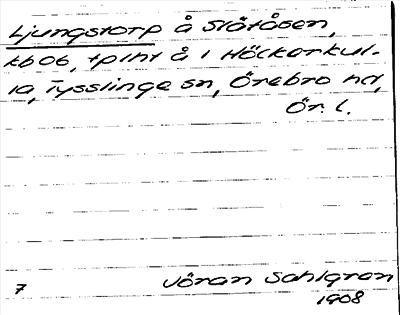 Ljungstorp å Slätåsen,
tb06, tplht å 1 Höckerkul-
la, Tysslinge sn, Örebro hd,
Ör. l.
7 Jöran Sahlgren
1908